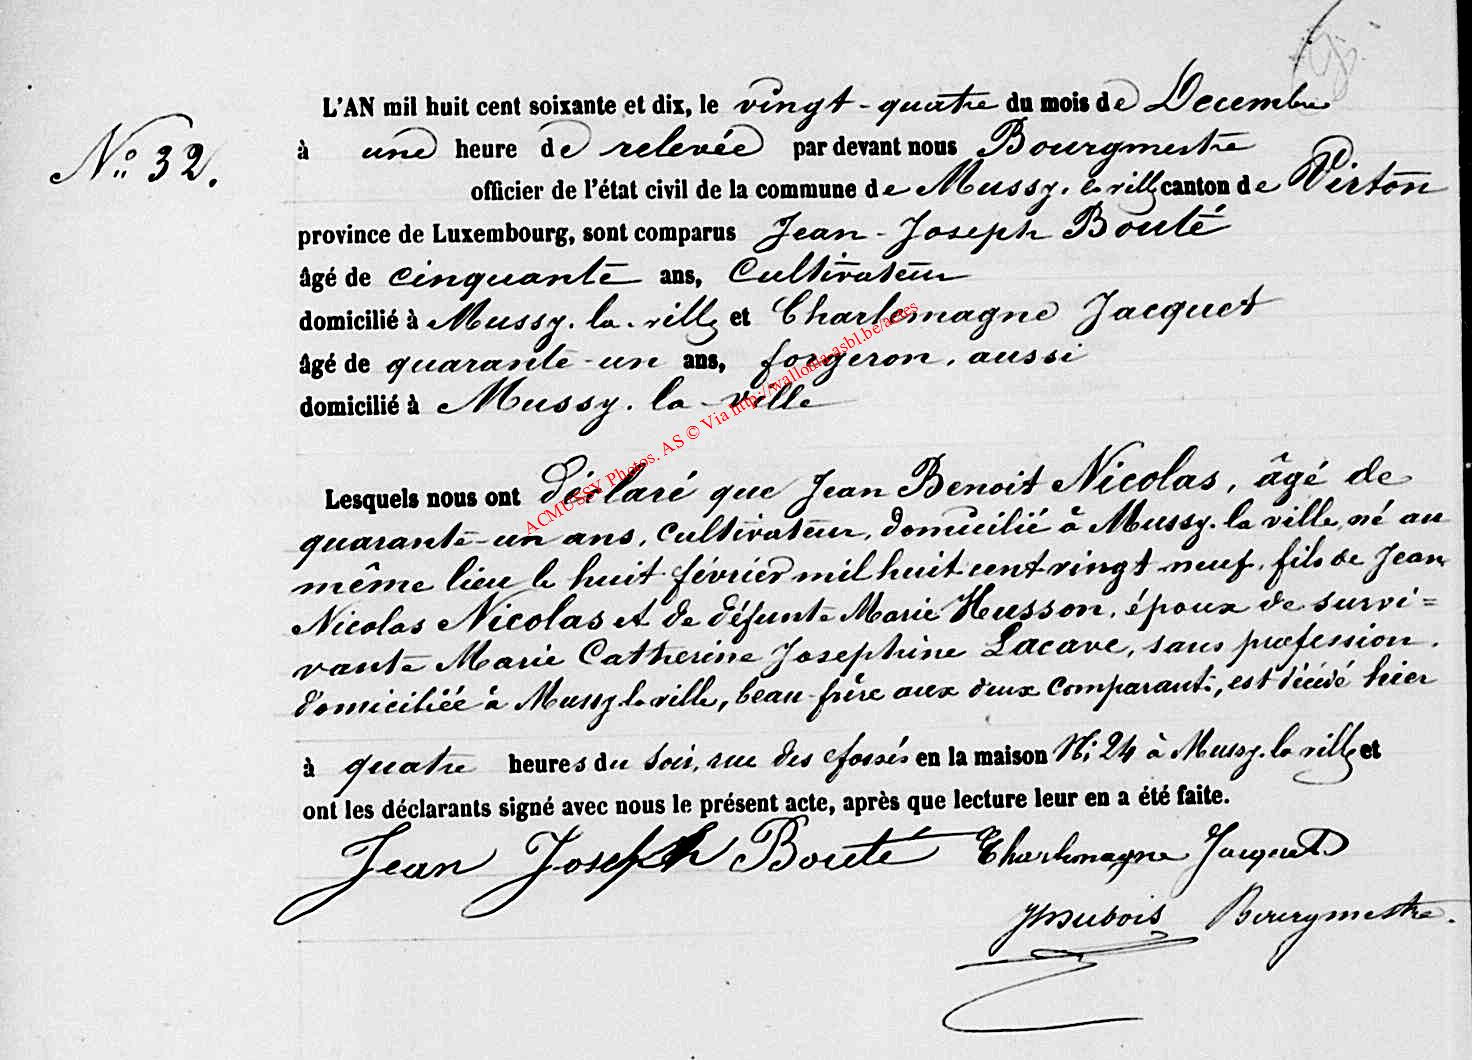 N° 32.
L'AN mil huit cent soixante et dix, le vingt-quatre du mois de Decembre
à une heure de relevée par devant nous Bourgmestre
officier de l'état civil de la commune de Mussy-la-ville canton de Virton
province de Luxembourg, sont comparus Jean-Joseph Bouté
âgé de cinquante ans, Cultivateur
domicilié à Mussy-la-ville et Charlemagne Jacquet
âgé de quarante-un ans, forgeron, aussi
domicilié à Mussy-la-ville
ACMUSSY Photos. AS © Via http://wallonia-asbl.be/actes
Lesquels nous ont déclaré que Jean Benoit Nicolas, âgé de
quarante-un ans, cultivateur, domicilié à Mussy-la ville, né au
même lieu le huit février mil huit cent vingt neuf, fils de Jean
Nicolas Nicolas et de défunte Marie Husson, époux de survi=
vante Marie Catherine Josephine Lacave, sans profession,
domiciliée à Mussy-la-ville, beau-frère aux deux comparants, est décédé hier
à quatre heures du soir, rue des fossés en la maison N° 24 à Mussy-la ville et
ont les déclarants signé avec nous le présent acte, après que lecture leur en a été faite.
Jean Joseph Bouté Charlemagne Jacquet
Dubois Bourgmestre.